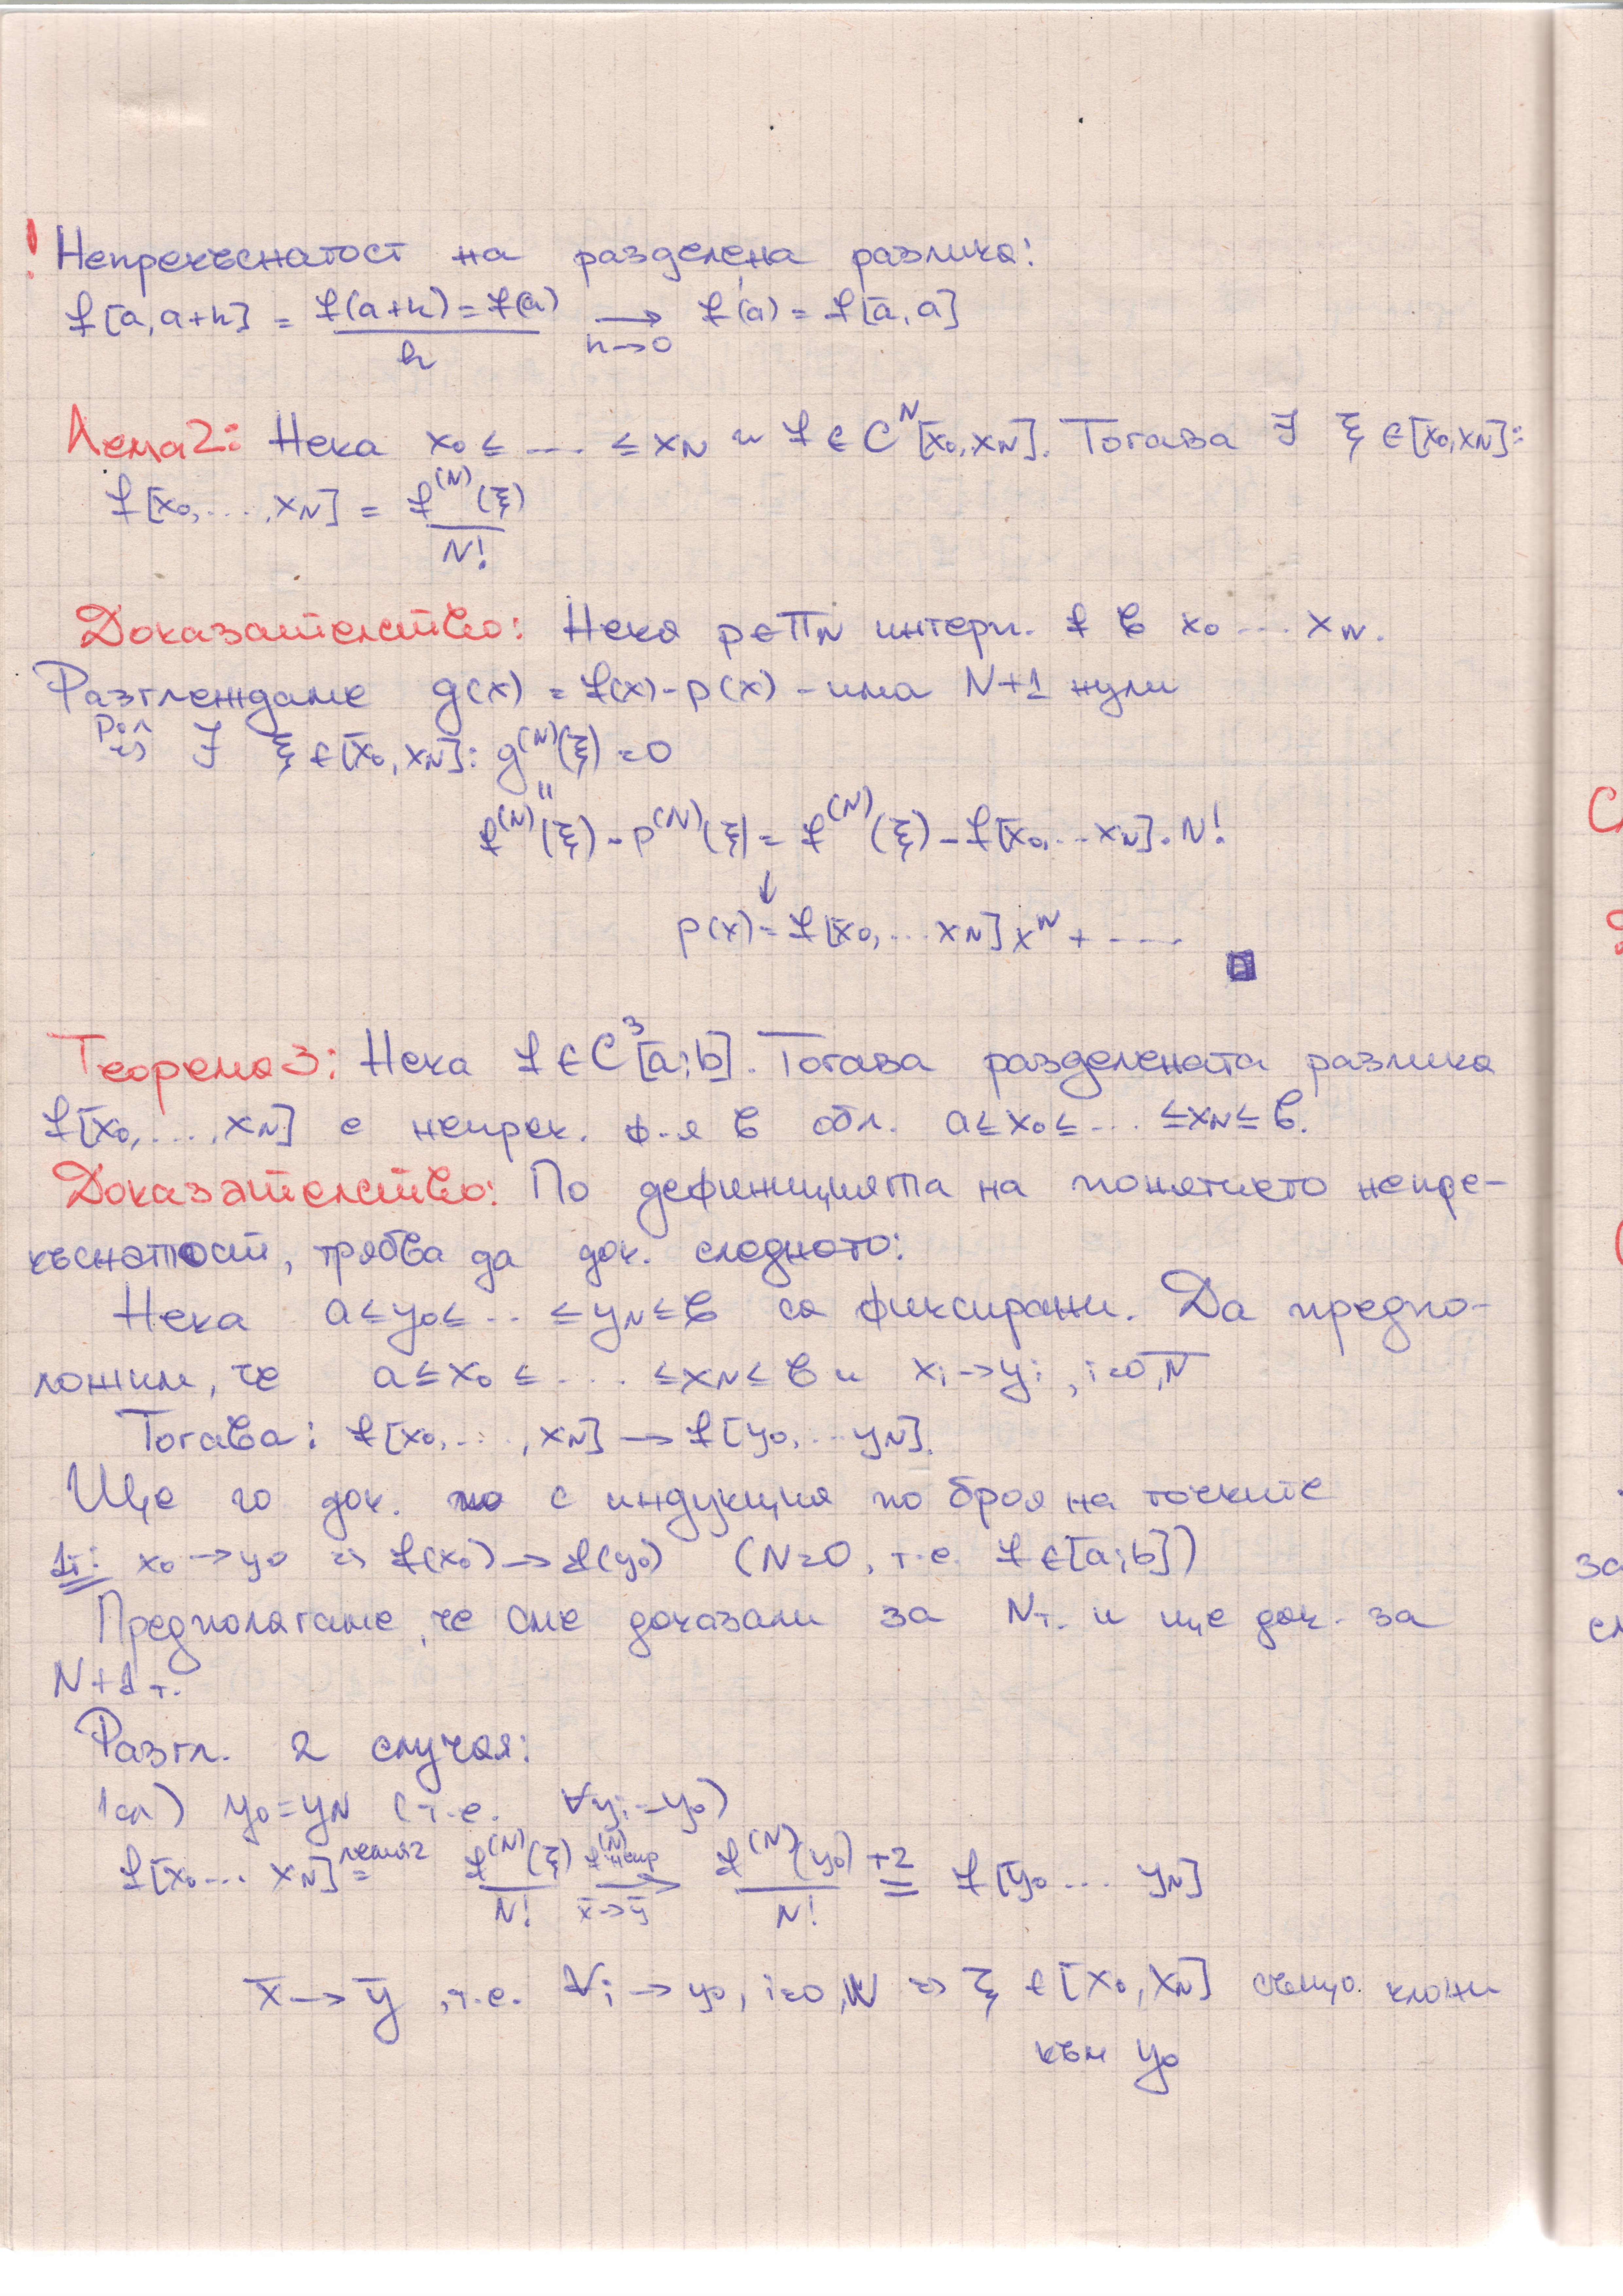 ! Непрекъснатост на разделена разлика:
f[a, a+h] = f(a+h) = f(a) / h → h→0 f'(a) = f[a, a]
Лема 2: Нека x₀ ≤ .... ≤ x_N и f ∈ C^N[x₀, x_N]. Тогава ∃ ξ ∈ [x₀, x_N]:
f[x₀, ...., x_N] = f^(N)(ξ) / N!
Доказателство: Нека p ∈ Π_N интерп. f в x₀ ... x_N.
Разглеждаме g(x) = f(x) - p(x) - има N+1 нули
Рол => ∃ ξ ∈ [x₀, x_N]: g^(N)(ξ) = 0
"
f^(N)(ξ) - p^(N)(ξ) = f^(N)(ξ) - f[x₀, ... x_N] . N!
↓
p(x) = f[x₀, ... x_N] x^N + ....
Теорема 3: Нека f ∈ C³[a; b]. Тогава разделената разлика
f[x₀, ...., x_N] е непрек. ф-я в обл. a ≤ x₀ ≤ ... ≤ x_N ≤ b.
Доказателство: По дефиницията на понятието непре-
къснатост, трябва да док. следното:
Нека a ≤ y₀ ≤ ... ≤ y_N ≤ b са фиксирани. Да предпо-
ложим, че a ≤ x₀ ≤ .... ≤ x_N ≤ b и x_i → y_i, i=0,N
Тогава: f[x₀, ..., x_N] → f[y₀, ... y_N].
Ще го док. с индукция по броя на точките
1т: x₀ → y₀ => f(x₀) → f(y₀) (N=0, т.е. f ∈ [a; b])
Предполагаме, че сме доказали за N т. и ще док. за
N+1 т.
Разгл. 2 случая:
1сл) y₀ = y_N (т.е. ∀y_i = y₀)
f[x₀ ... x_N] лема2 = f^(N)(ξ) / N! f^(N) непр → x̄→ȳ f^(N)(y₀) / N! т2 = f[y₀ ... y_N]
x̄ → ȳ, т.е. ∀_i → y₀, i=0,N => ξ ∈ [x₀, x_N] също клони
към y₀